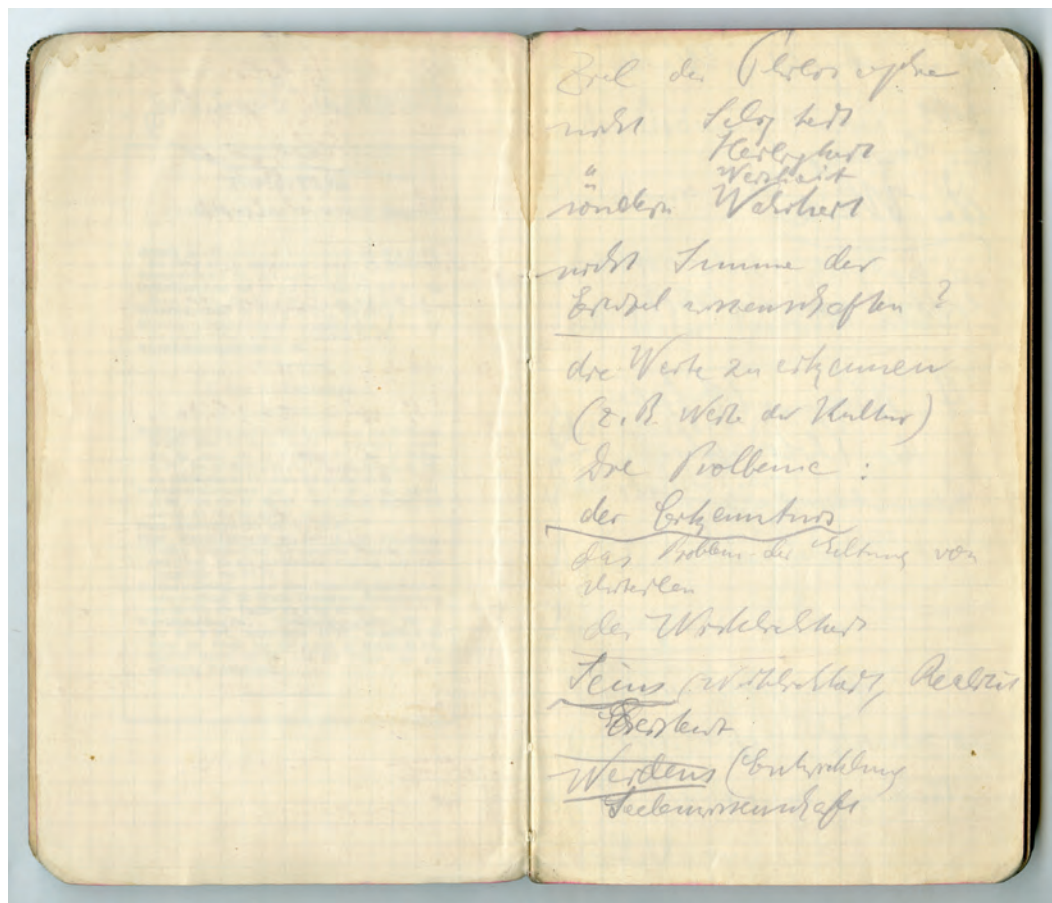 Ziel der Philosophie
nicht Seligkeit
Heiligkeit
" Weisheit
sondern Wahrheit
nicht Summe der
Einzelwissenschaften ?
die Werte zu erkennen
(z. B. Werte der Kultur)
Die Probleme :
der Erkenntnis
das Problem der Geltung von
Urteilen
der Wirklichkeit
Seins (Wirklichkeit, Realität
Werdens (Entwicklung
Seelenwissenschaft